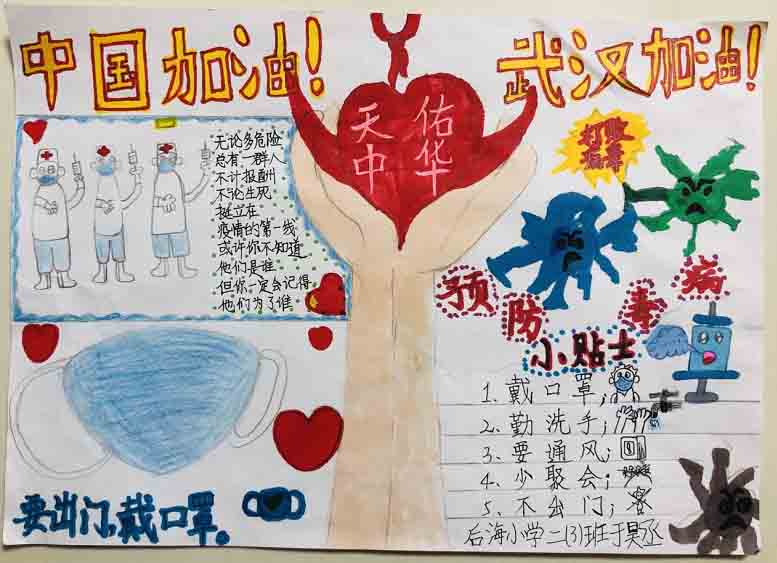 中国加油!
武汉加油!
天佑
中华
打败
病毒
无论多危险
总有一群人
不计报酬
不论生死
挺立在
疫情的第一线
或许你不知道
他们是谁
但你一定会记得
他们为了谁
预防毒病
小贴士
1、戴口罩;
2、勤洗手;
3、要通风;
4、少聚会;
5、不出门;
后海小学二(3)班于昊丞
要出门,戴口罩。